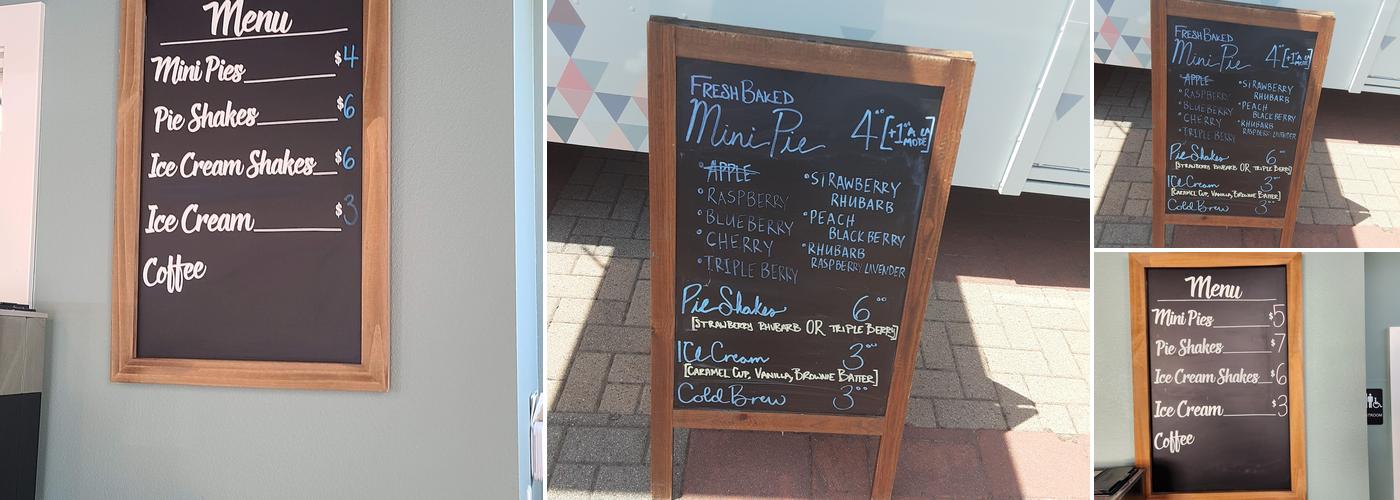 Menu
Mini Pies $4
Pie Shakes $6
Ice Cream Shakes $6
Ice Cream $3
Coffee
FRESH BAKED
Mini Pie 4°° [+1°° A LA MODE]
°APPLE
°RASPBERRY
°BLUEBERRY
°CHERRY
°TRIPLE BERRY
°STRAWBERRY
RHUBARB
°PEACH
BLACKBERRY
°RHUBARB
RASPBERRY LAVENDER
Pie Shakes 6°°
[STRAWBERRY RHUBARB OR TRIPLE BERRY]
Ice Cream 3°°
[CARAMEL CUP, VANILLA, BROWNIE BATTER]
Cold Brew 3°°
FRESH BAKED
Mini Pie 4°° [+1°° A LA MODE]
°APPLE
°RASPBERRY
°BLUEBERRY
°CHERRY
°TRIPLE BERRY
°STRAWBERRY
RHUBARB
°PEACH
BLACKBERRY
°RHUBARB
RASPBERRY LAVENDER
Pie Shakes 6°°
[STRAWBERRY RHUBARB OR TRIPLE BERRY]
Ice Cream 3°°
[CARAMEL CUP, VANILLA, BROWNIE BATTER]
Cold Brew 3°°
Menu
Mini Pies $5
Pie Shakes $7
Ice Cream Shakes $6
Ice Cream $3
Coffee